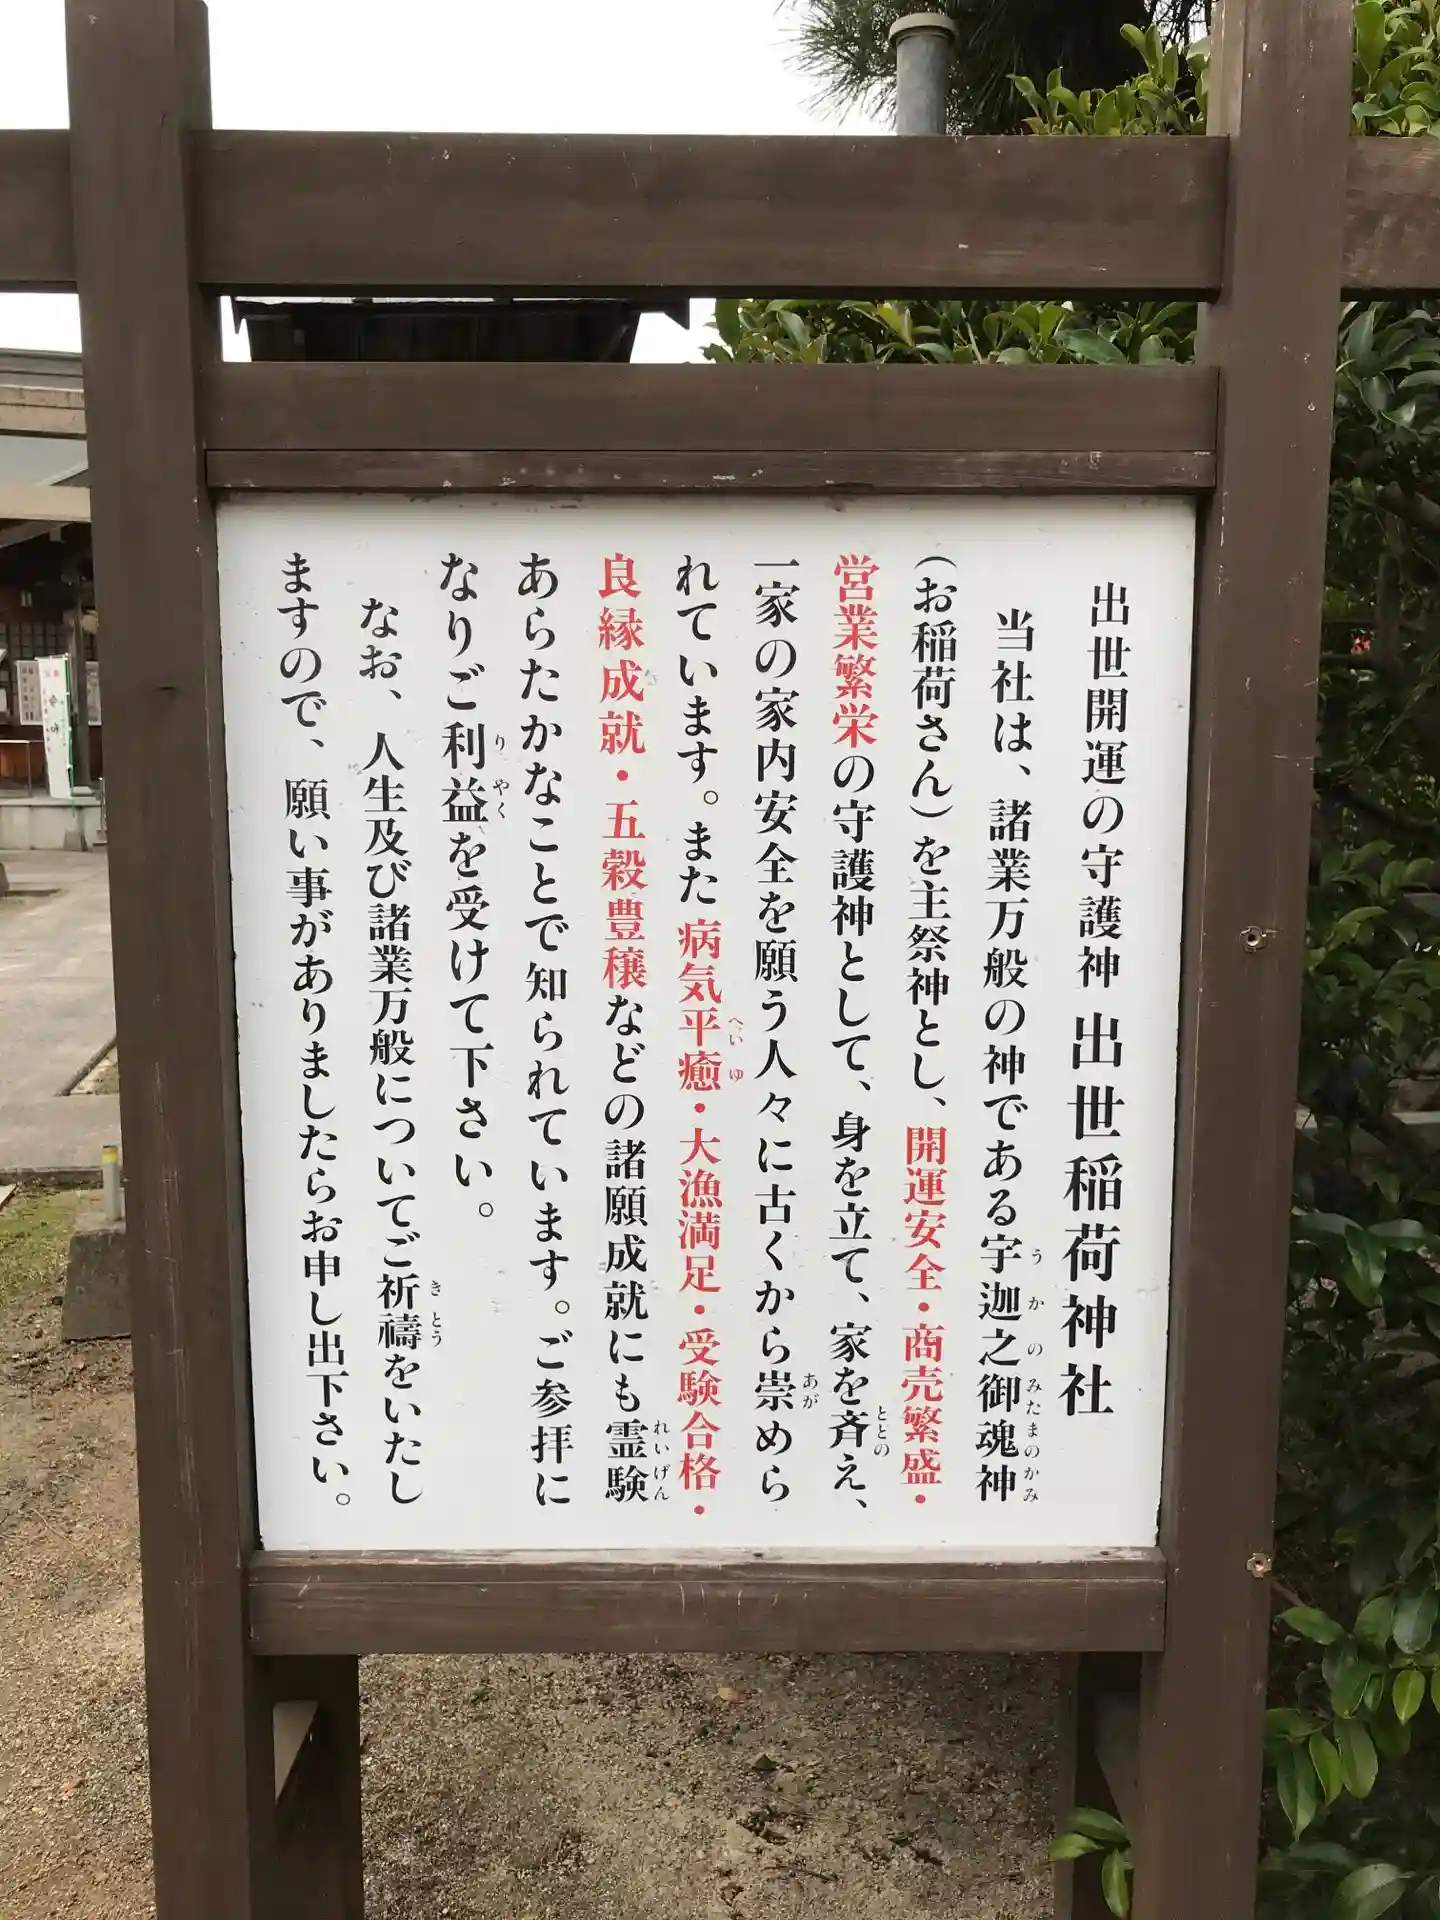 出世開運の守護神 出世稲荷神社
当社は、諸業万般の神である宇迦之御魂神
(お稲荷さん)を主祭神とし、開運安全・商売繁盛・
営業繁栄の守護神として、身を立て、家を斉え、
一家の家内安全を願う人々に古くから崇めら
れています。また病気平癒・大漁満足・受験合格・
良縁成就・五穀豊穣などの諸願成就にも霊験
あらたかなことで知られています。ご参拝に
なりご利益を受けて下さい。
なお、人生及び諸業万般についてご祈禱をいたし
ますので、願い事がありましたらお申し出下さい。